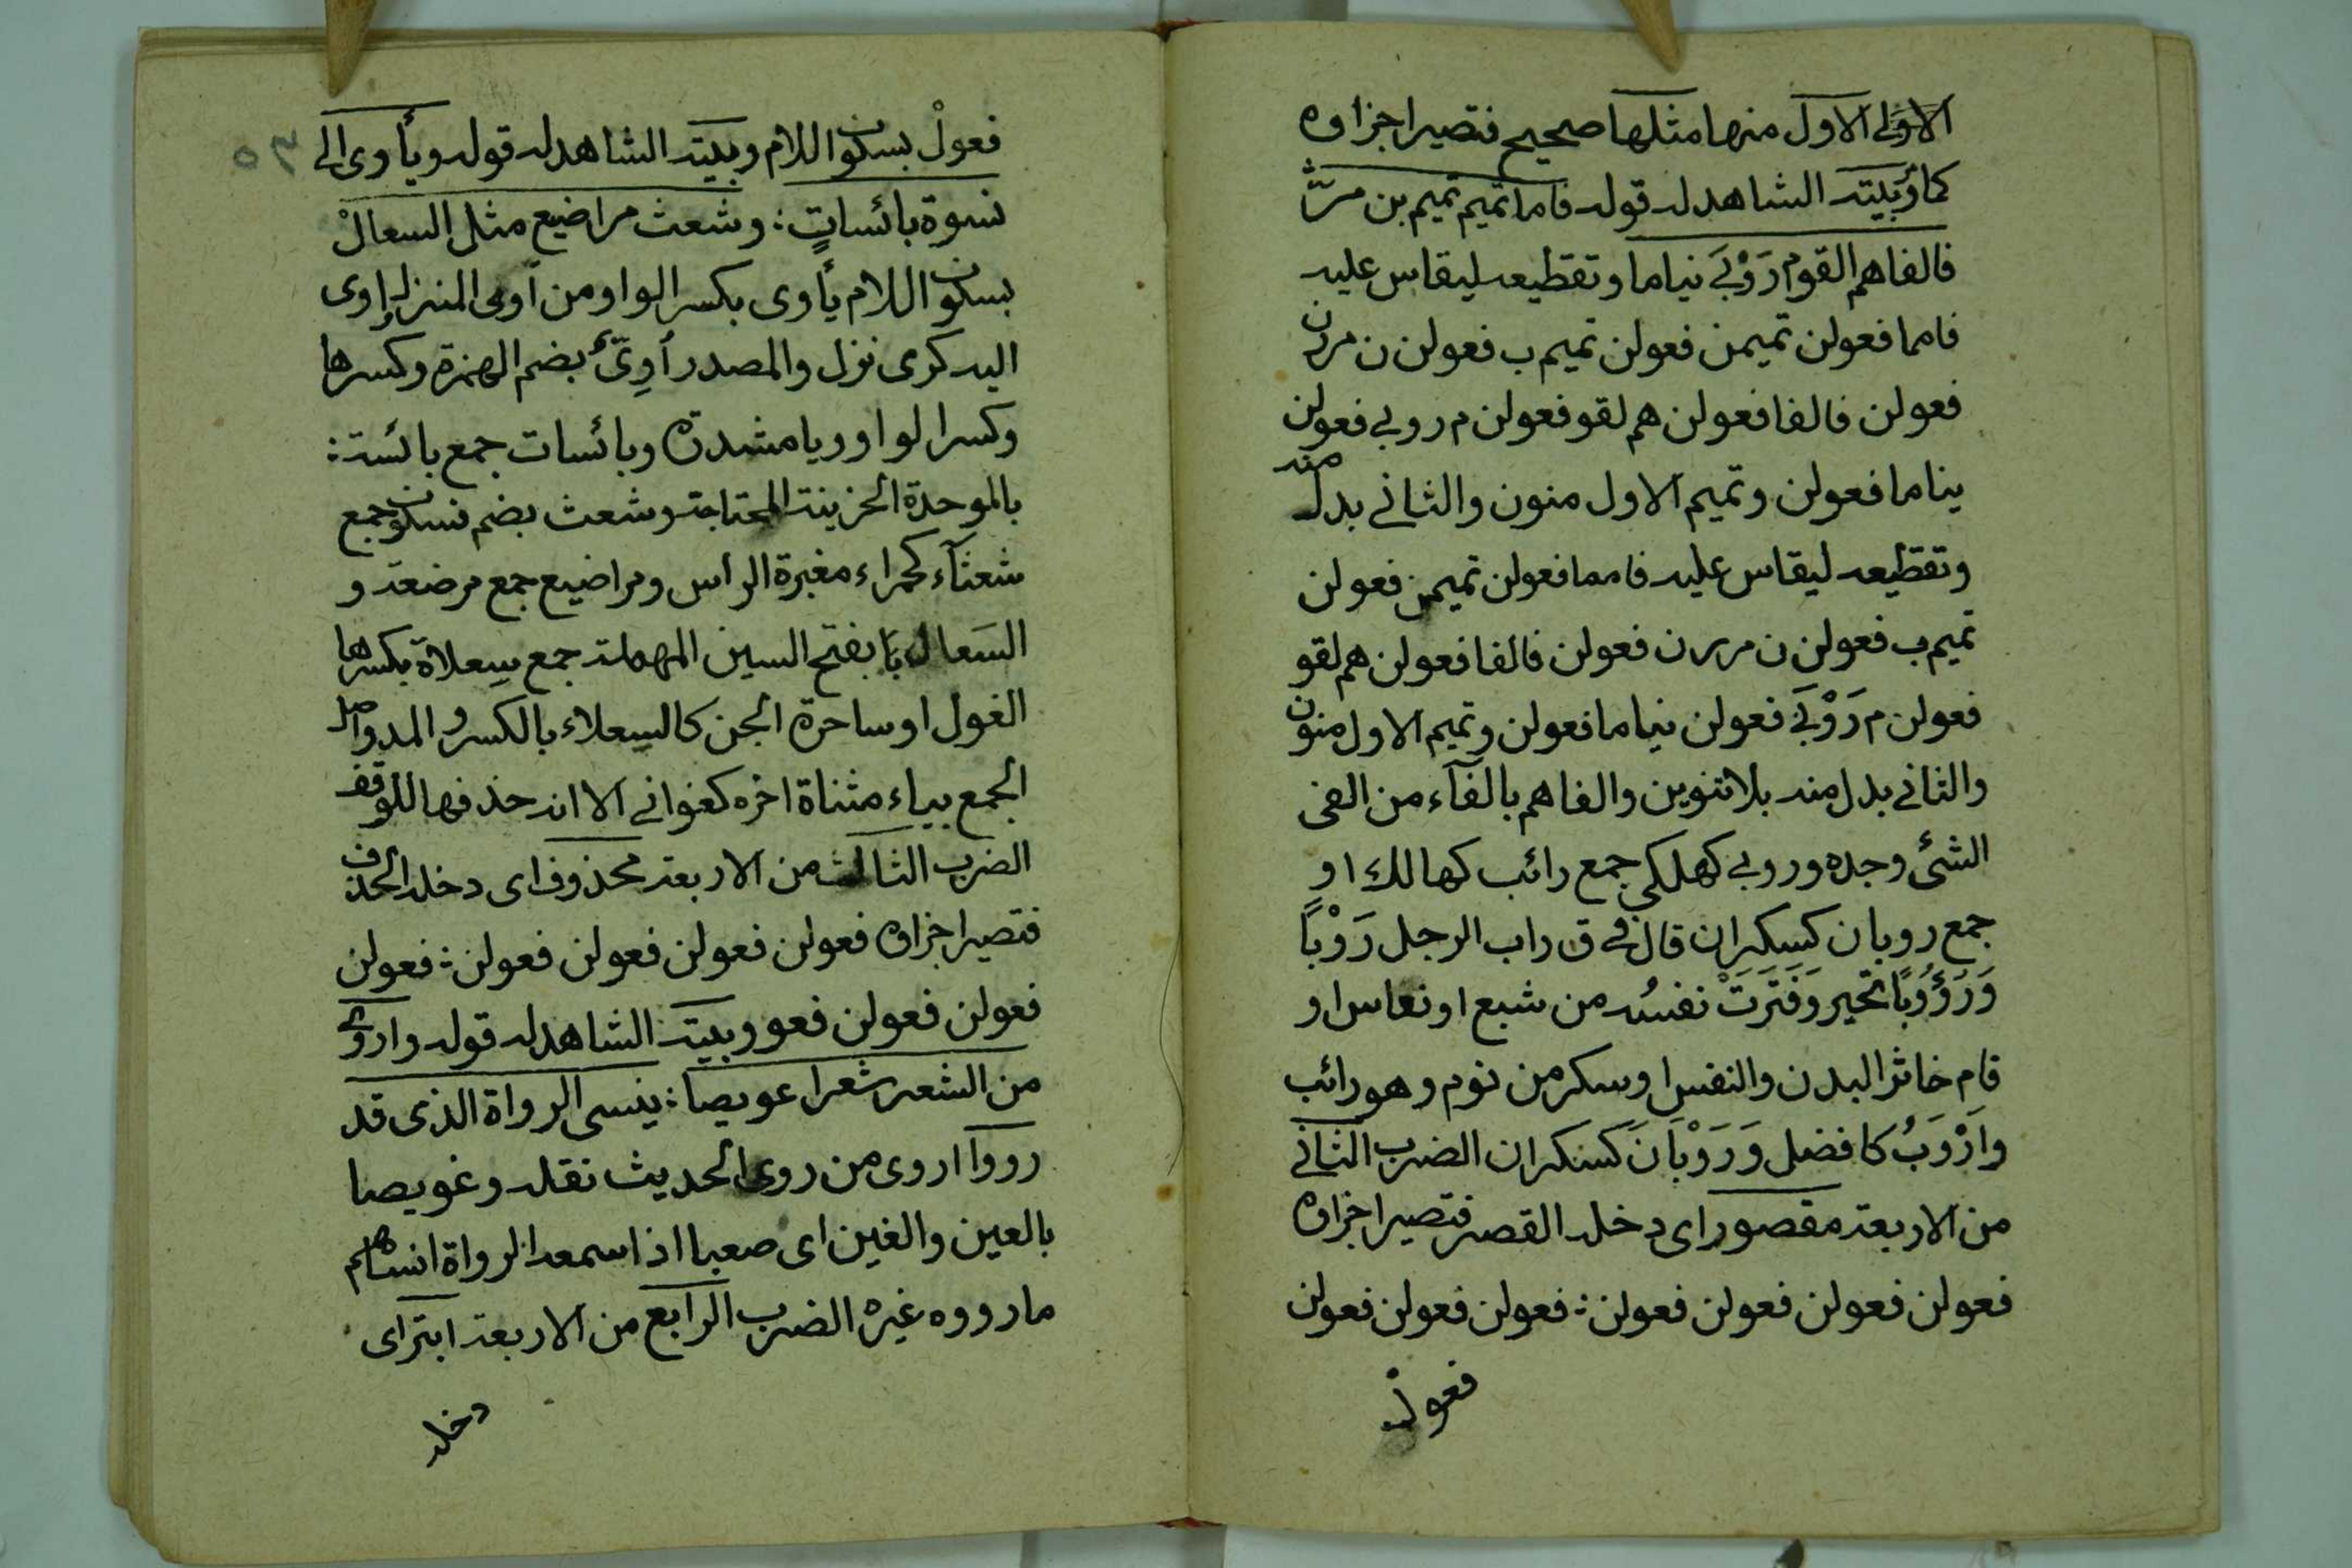 الاولى الاول منها مثلها صحيح فتصير اجزاوه
كما وبيته الشاهد له قوله فاما تميم تميم بن مرّ
فالفاهم القوم رَوْبَى نياما وتقطيعه ليقاس عليه
فامما فعولن تميمن فعولن تميم ب فعولن ن مررن
فعولن فالفا فعولن هم لقو فعولن م روبى فعولن
نياما فعولن وتميم الاول منون والثاني بدل منه
وتقطيعه ليقاس عليه فامما فعولن تميمن فعولن
تميم ب فعولن ن مررن فعولن فالفا فعولن هم لقو
فعولن م رَوْبَى فعولن نياما فعولن وتميم الاول منون
والثاني بدل منه بلا تنوين والفاهم بالفآء من الفى
الشئ وجده وروبى كهلكى جمع رائب كهالك او
جمع روبان كسكران قال في ق راب الرجل رَوْبًا
وَرُؤُوبًا تحير وَفَتَرَتْ نفسُه من شبع او نعاس او
قام خاثر البدن والنفس او سكر من نوم وهو رائب
وَاَرْوَبُ كافضل وَرَوْبَانَ كسكران الضرب الثاني
من الاربعة مقصور اى دخله القصر فتصير اجزاؤه
فعولن فعولن فعولن فعولن : فعولن فعولن فعولن
فعولْ
فعولْ بسكون اللام وبيته الشاهد له قوله ويأوى الى
نسوة بائساتٍ : وشعث مراضيع مثل السعالْ
بسكون اللام يأوى بكسر الواو من آوى المنزل اوى
اليه كرمى نزل والمصدر أُوِىّ بضم الهمزة وكسرها
وكسر الواو ويا مشددة وبائسات جمع بائسة :
بالموحدة الحزينة المحتاجة وشعث بضم فسكون جمع
شعثآء كحمراء مغبرة الراس ومراضيع جمع مرضعة و
السَعال بفتح السين المهملة جمع سِعلاة بكسرها
الغول او ساحرة الجن كالسِعلاء بالكسر والمد واصل
الجمع بياء مثناة اخره كغوانى الا انه حذفها للوقف
الضرب الثالث من الاربعة محذوف اى دخله الحذف
فتصير اجزاؤه فعولن فعولن فعولن فعولن : فعولن
فعولن فعولن فعو وبيته الشاهد له قوله واروى
من الشعر شعرا عويصا : ينسى الرواة الذى قد
رووا اروى من روى الحديث نقله وغويصا
بالعين والغين اى صعبا اذا سمعه الرواة انساهم
ما رووه غيره الضرب الرابع من الاربعة ابتر اى
دخله